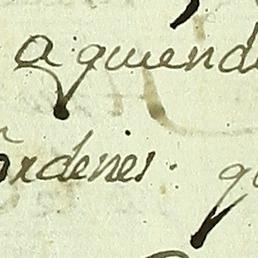 a quiend
õrdenes. q